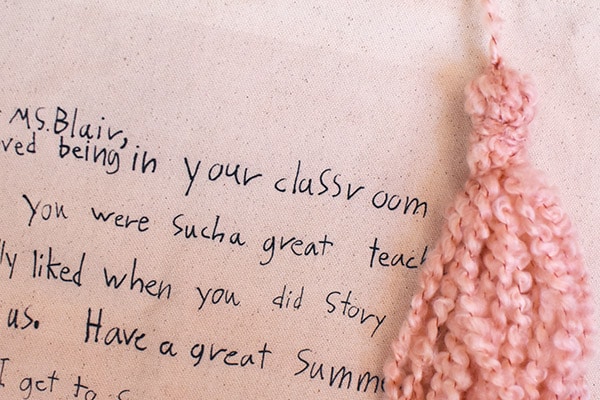 Ms. Blair,
ved being in your classroom
You were such a great teach
ly liked when you did Story
us. Have a great Summe
I get to